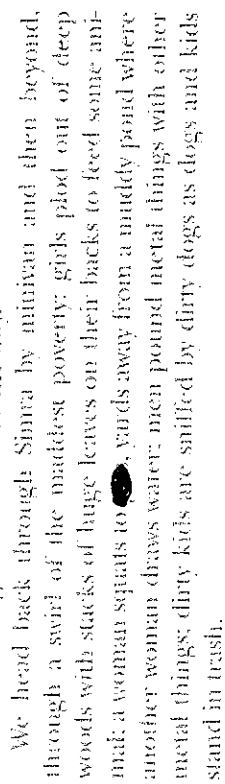 We head back through Simra by minivan and then beyond,
through a swirl of the maddest poverty: girls plod out of deep
woods with stacks of huge leaves on their backs to feed some ani-
mal; a woman squats to yards away from a muddy pond where
another woman draws water; men pound metal things with other
metal things; dirty kids are sniffed by dirty dogs as dogs and kids
stand in trash.